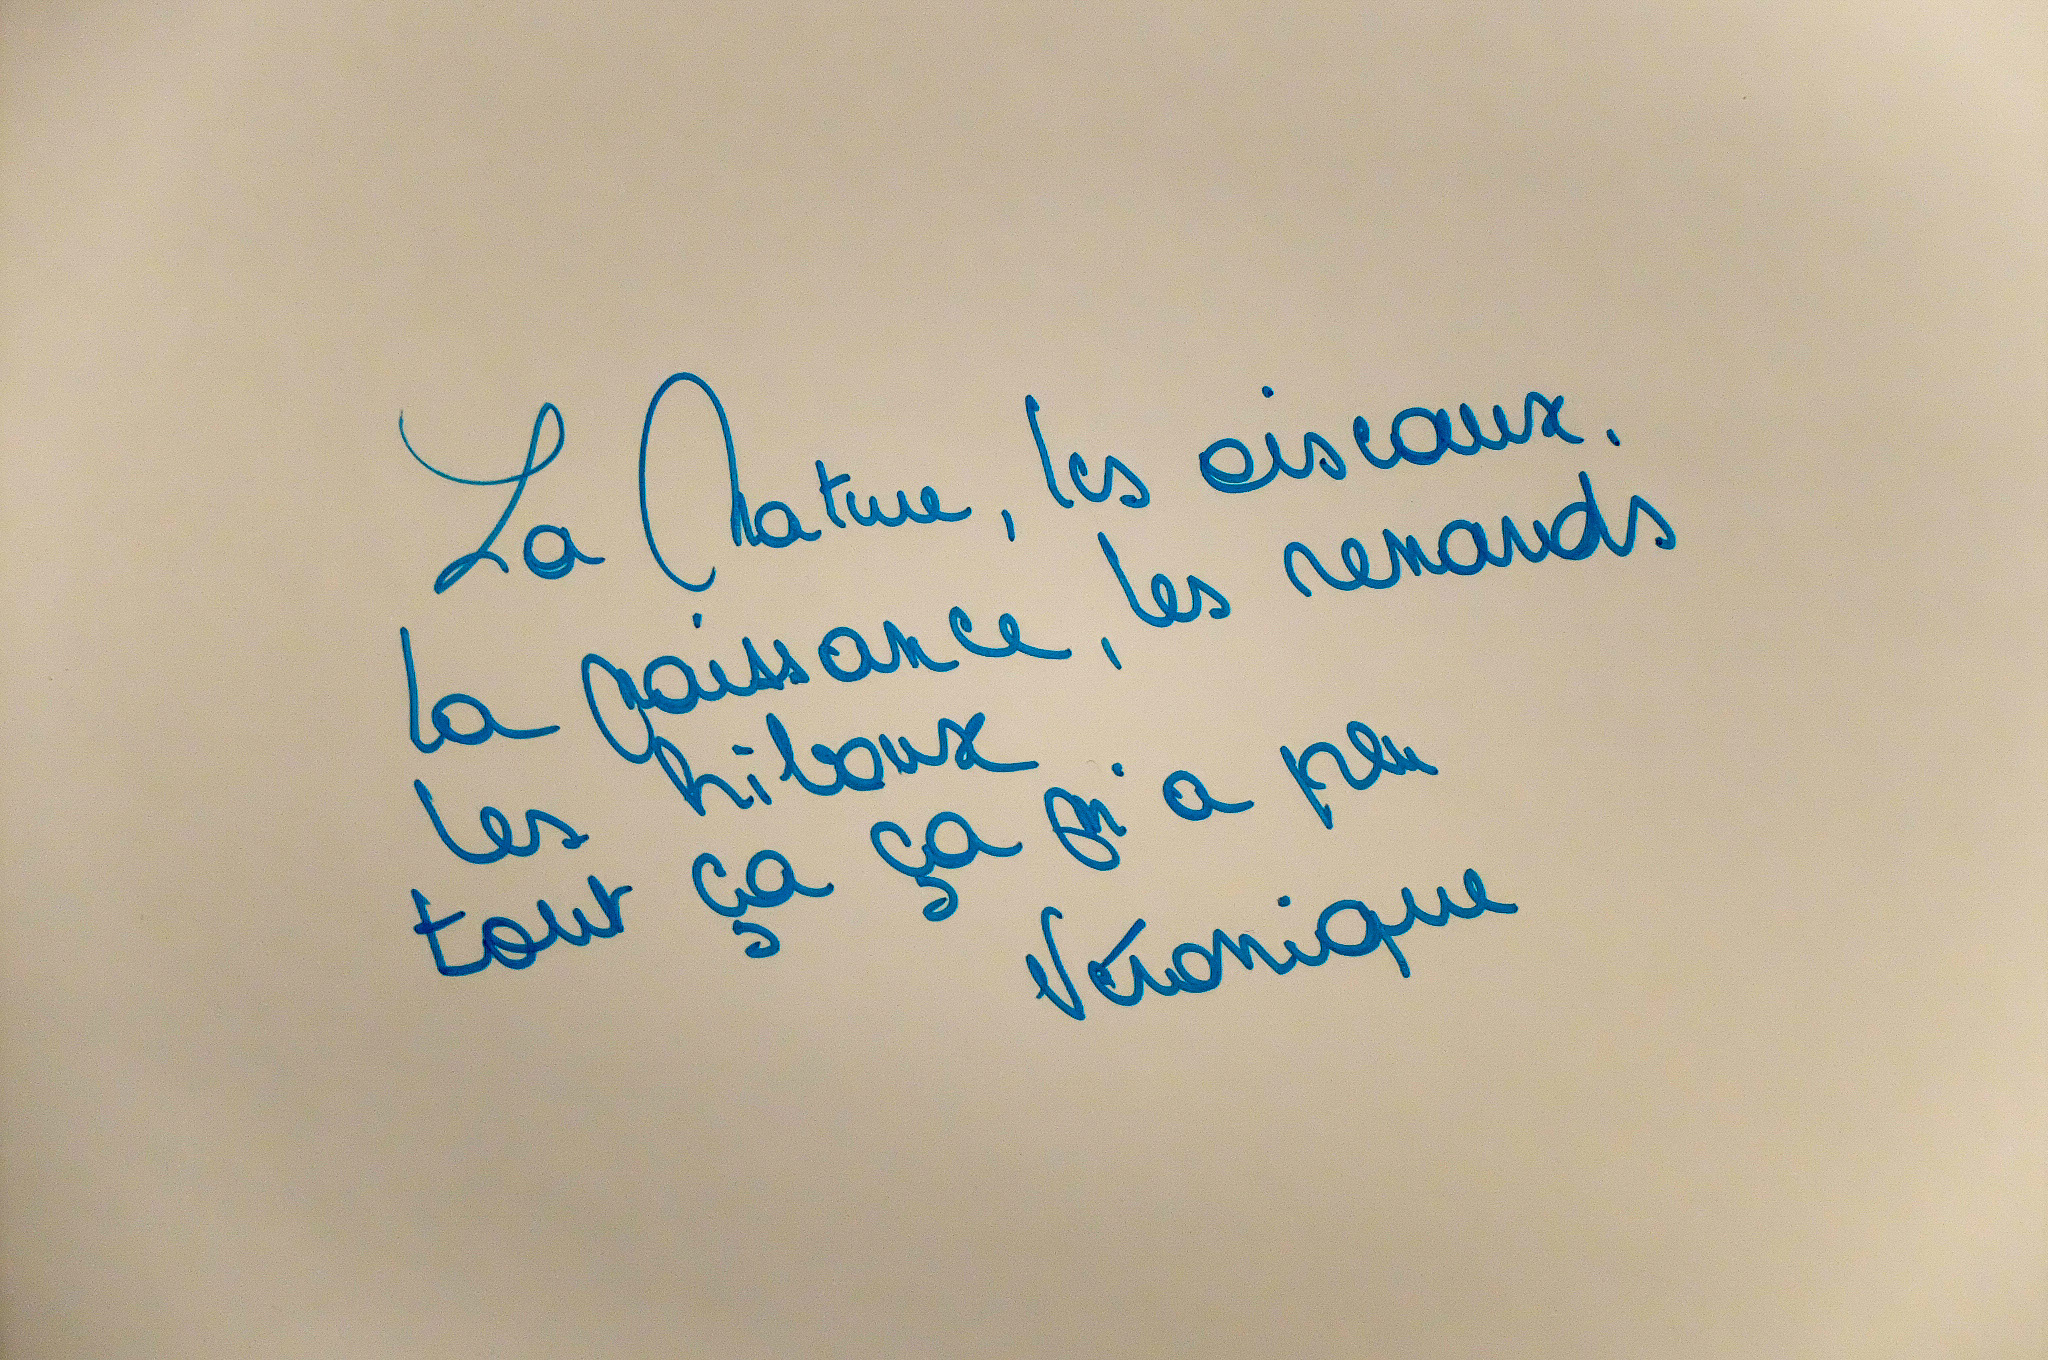 La Nature, les oiseaux.
la naissance, les renards
les hiboux
tout ça ça m'a plu
Véronique